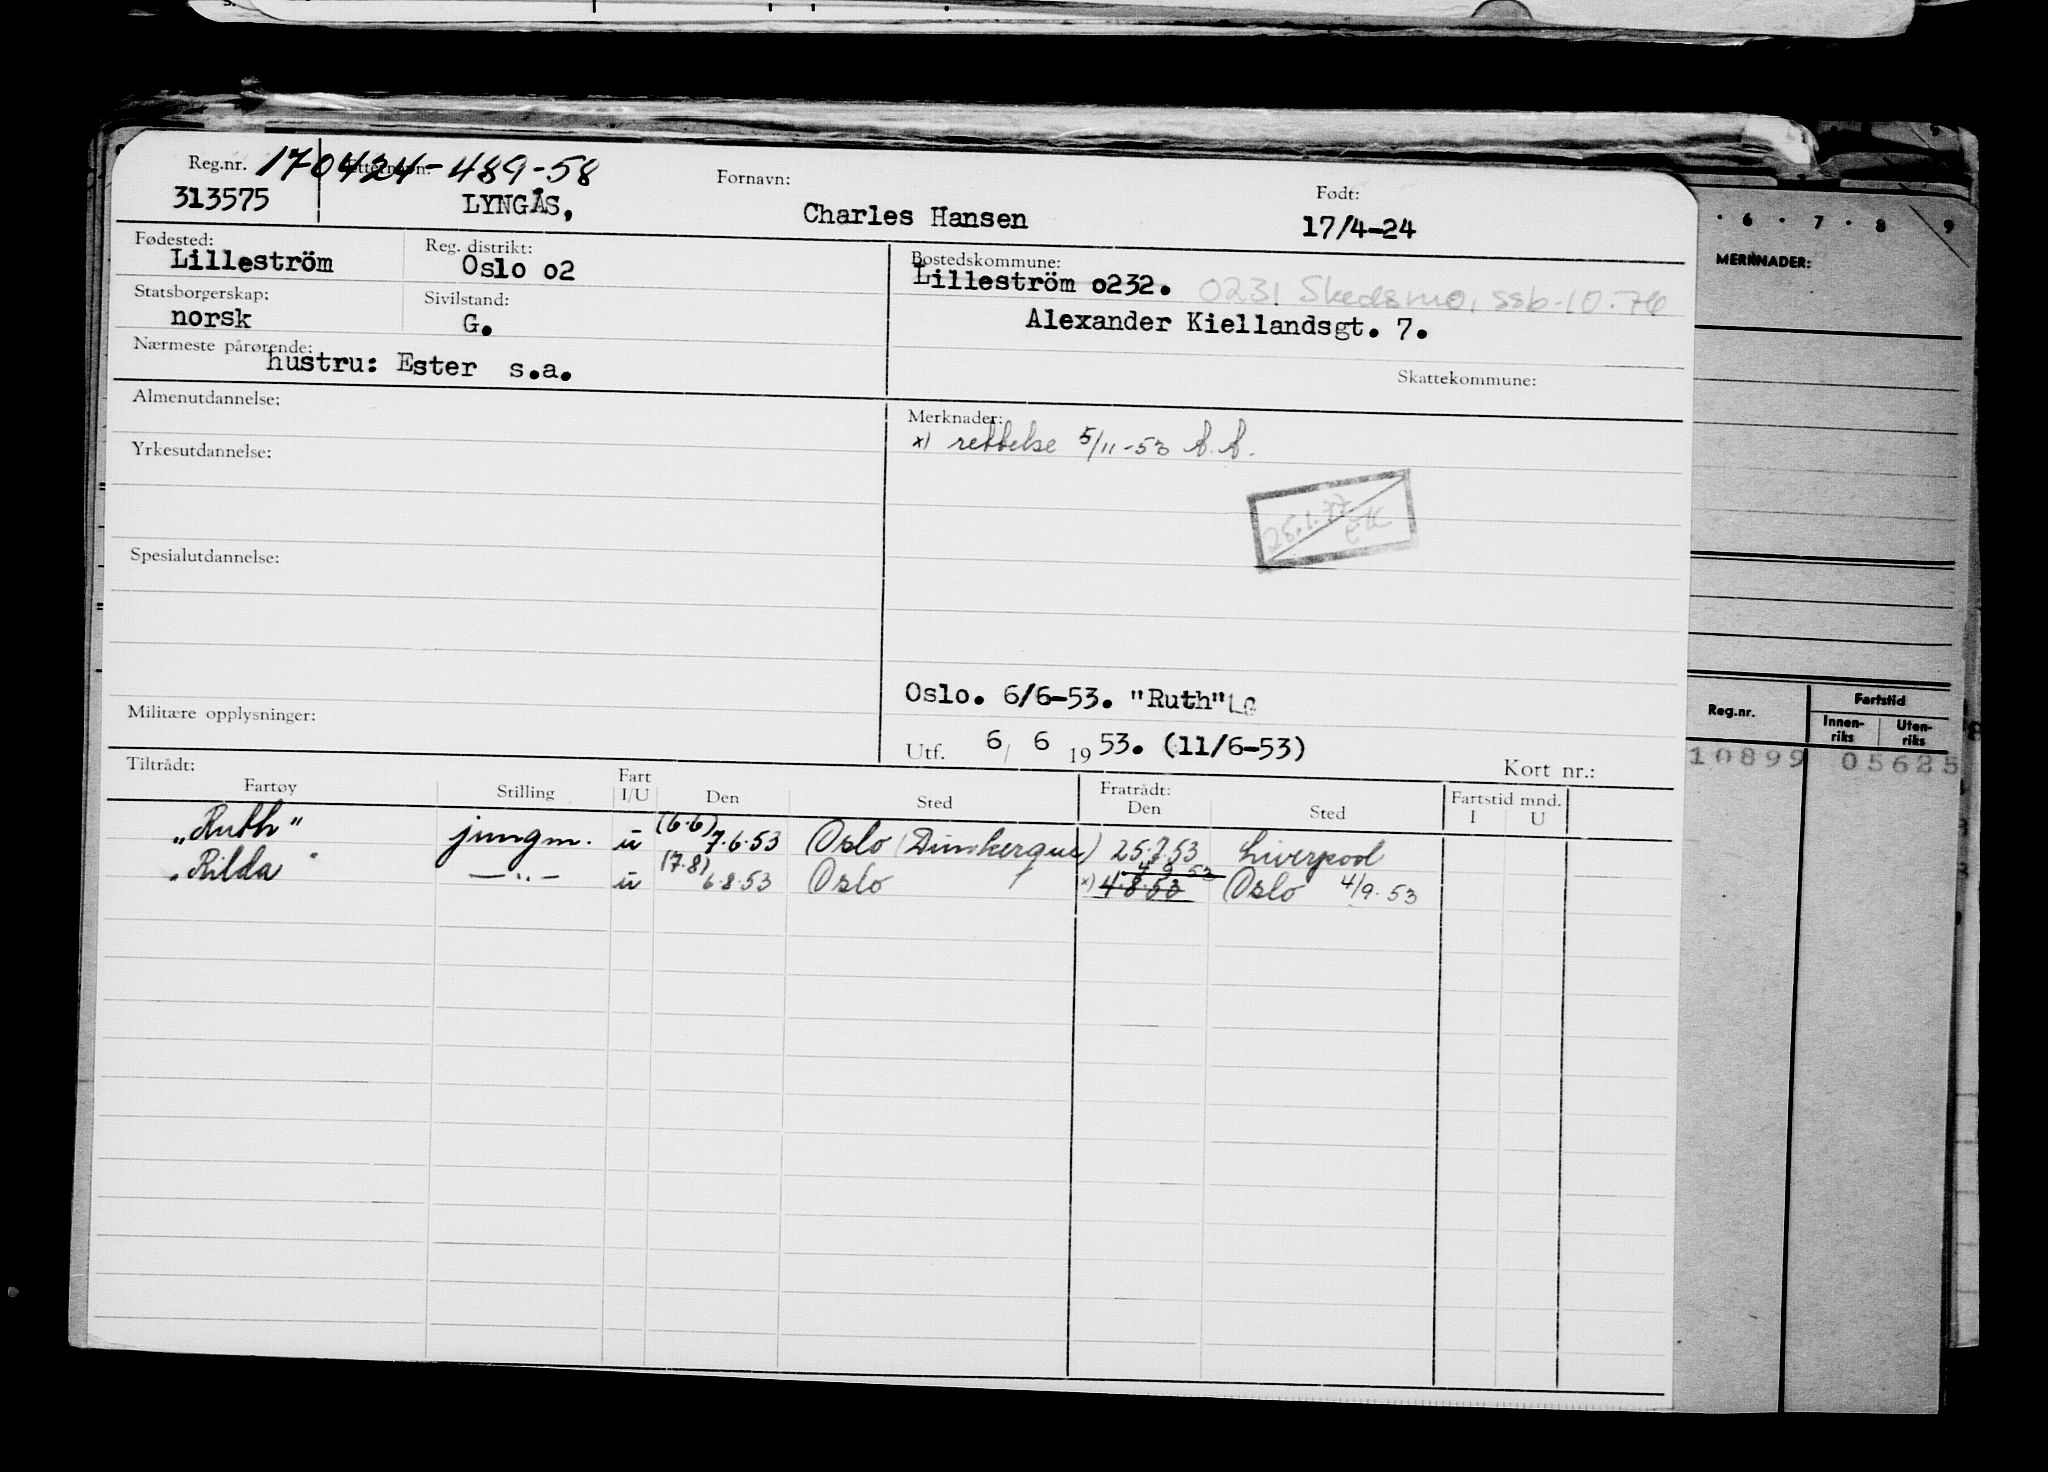 Reg.nr. 170424-489-58 Etternavn: Fornavn: Født:
313575 LYNGÅS, Charles Hansen 17/4-24
Fødested: Reg. distrikt: Bostedskommune:
Lilleström Oslo o2 Lilleström o232. 0231 Skedsmo, ssb-10.76
Statsborgerskap: Sivilstand:
norsk G. Alexander Kiellandsgt. 7.
Nærmeste pårørende: Skattekommune:
hustru: Ester s.a.
Almenutdannelse: Merknader:
x) rettelse 5/11-53
Yrkesutdannelse:
25.1.77
Spesialutdannelse:
Oslo. 6/6-53. "Ruth" LG
Militære opplysninger:
Utf. 6/ 6 19 53. (11/6-53)
Kort nr.:
Tiltrådt: Fratrådt:
Fartøy Stilling Fart I/U Den Sted Den Sted Fartstid mnd. I U
„Ruth" jungm. u (6.6) 7.6.53 Oslo (Dunkerque) 25.7.53 Liverpool
„Rilda" —"— u (7.8) 6.8.53 Oslo x) 4.8.53 4 9 53 Oslo 4/9.53
· 6 · 7 · 8 9
MERKNADER:
Reg.nr. Fartstid
Innen-riks Uten-riks
10899 05625